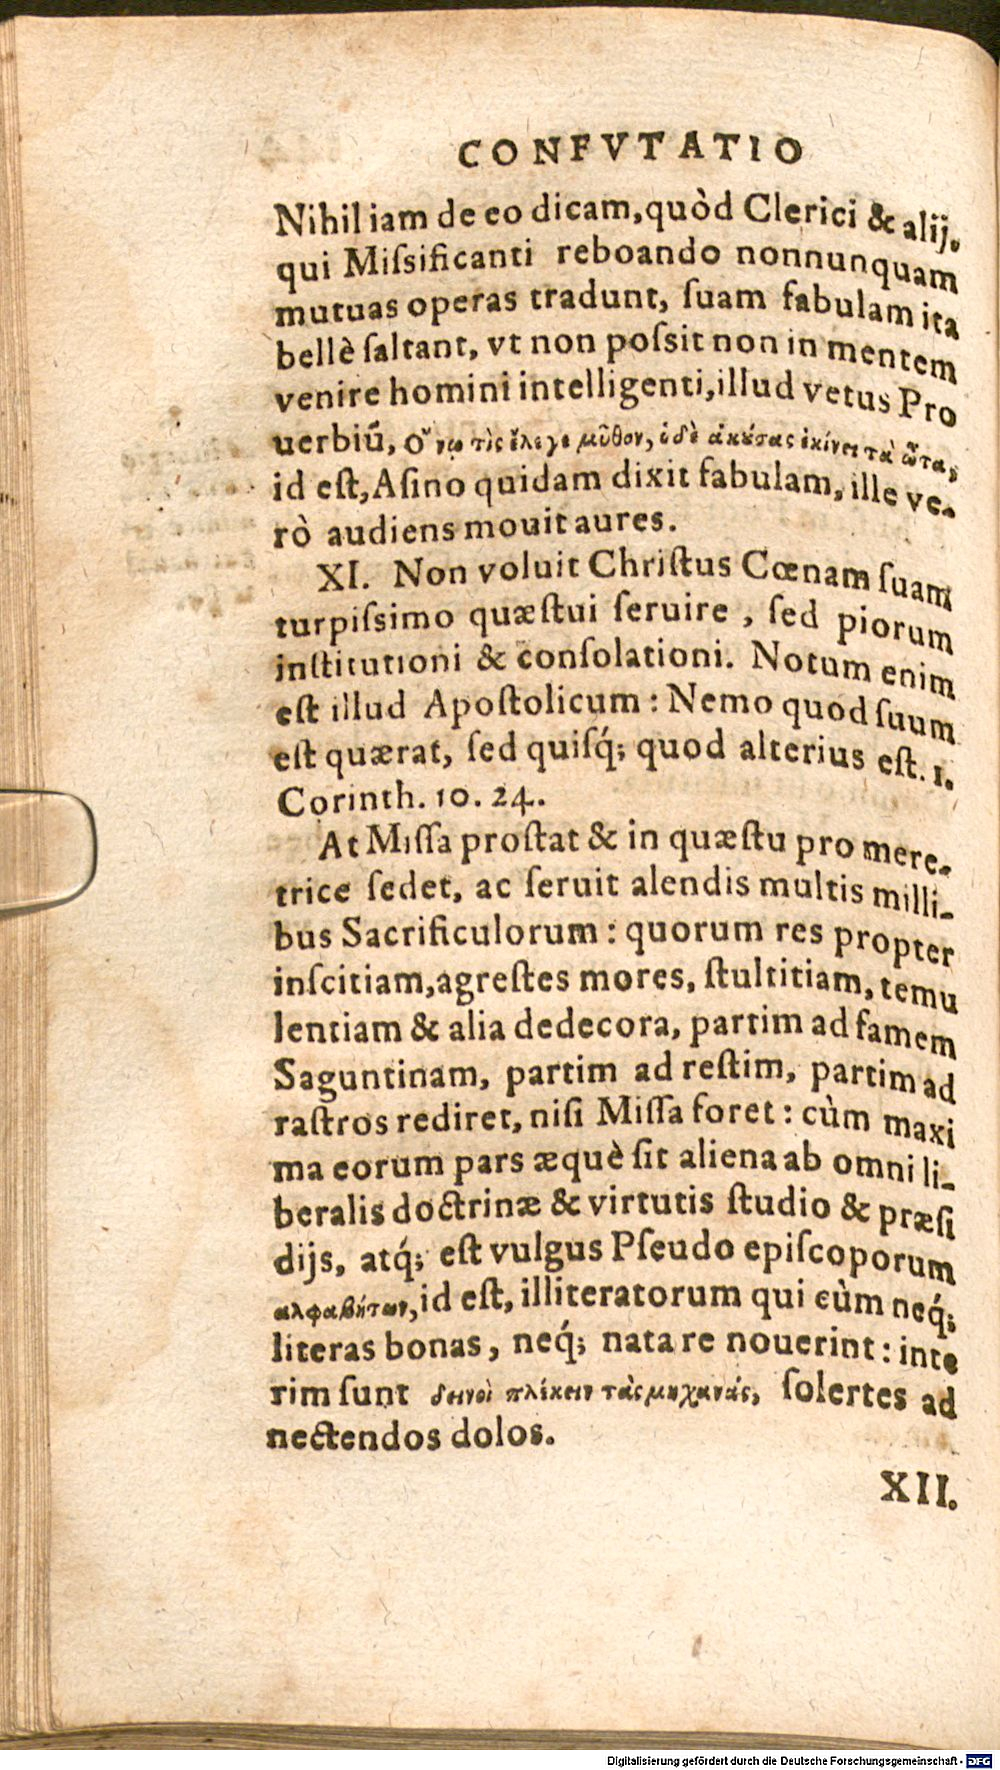 CONFVTATIO
Nihil iam de eo dicam, quòd Clerici & alij,
qui Miſsificanti reboando nonnunquam
mutuas operas tradunt, ſuam fabulam ita
bellè ſaltant, vt non poſsit non in mentem
venire homini intelligenti, illud vetus Pro
uerbiū, ὄνῳ τὶς ἔλεγε μῦθον, ὁ δὲ ἀκούσας ἐκίνει τὰ ὦτα,
id eſt, Aſino quidam dixit fabulam, ille ve-
rò audiens mouit aures.
XI. Non voluit Chriſtus Cœnam ſuam
turpiſsimo quæſtui ſeruire, ſed piorum
inſtitutioni & conſolationi. Notum enim
eſt illud Apoſtolicum: Nemo quod ſuum
eſt quærat, ſed quiſq́; quod alterius eſt. 1.
Corinth. 10. 24.
At Miſſa proſtat & in quæſtu pro mere-
trice ſedet, ac ſeruit alendis multis milli-
bus Sacrificulorum: quorum res propter
inſcitiam, agreſtes mores, ſtultitiam, temu
lentiam & alia dedecora, partim ad famem
Saguntinam, partim ad reſtim, partim ad
raſtros rediret, niſi Miſſa foret: cùm maxi
ma eorum pars æquè ſit aliena ab omni li-
beralis doctrinæ & virtutis ſtudio & præſi
dijs, atq́; eſt vulgus Pſeudo epiſcoporum
αλφαβήτων, id eſt, illiteratorum qui cùm neq́;
literas bonas, neq́; natare nouerint: inte
rim ſunt δεινοὶ πλέκειν τὰς μηχανάς, ſolertes ad
nectendos dolos.
XII.
Digitalisierung gefördert durch die Deutsche Forschungsgemeinschaft - DFG